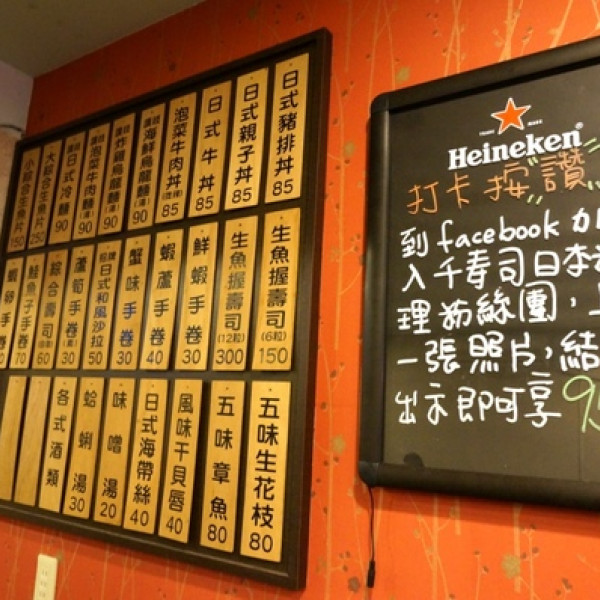 日式豬排丼 85
日式親子丼 85
日式牛丼 85
泡菜牛肉丼 85
海鮮烏龍麵(湯) 90
炸雞烏龍麵(湯) 90
泡菜牛肉麵(湯) 90
日式冷麵 90
大綜合生魚片 250
小綜合生魚片 150
生魚握壽司(6粒) 150
生魚握壽司(12粒) 300
鮮蝦手卷 30
蝦蘆手卷 40
蟹味手卷 30
招牌日式和風沙拉 50
蘆筍手卷 30
綜合壽司 60
鮭魚子手卷 70
蝦卵手卷
五味生花枝 80
五味章魚 80
風味干貝唇 40
日式海帶絲 40
味噌湯 20
蛤蜊湯 30
各式酒類
TRADE MARK
Heineken®
打卡按"讚"
到facebook加
入千壽司日本
理粉絲團,
一張照片,結
出示即可享 9